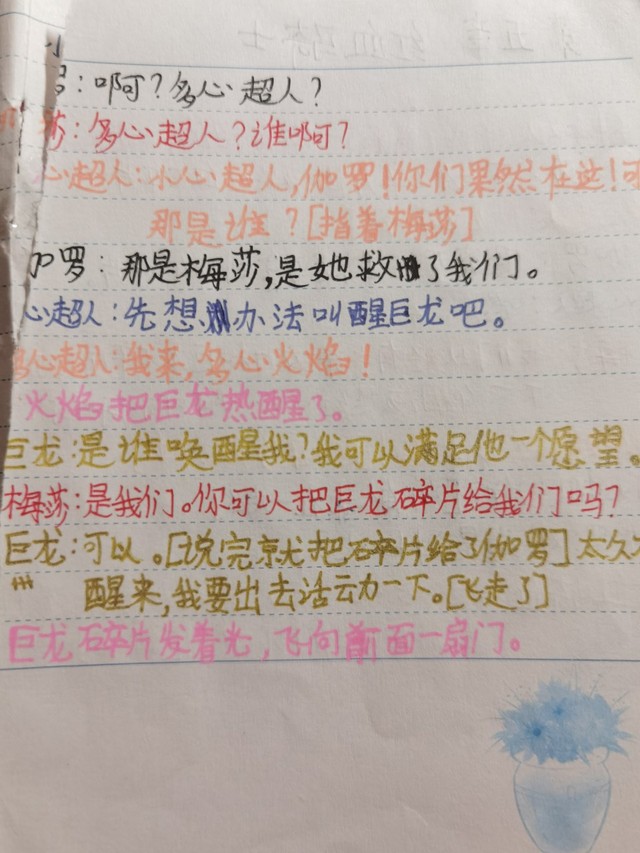 罗:啊?多心超人?
莎:多心超人?谁啊?
心超人:小心超人,伽罗!你们果然在这!
那是谁?[指着梅莎]
加罗:那是梅莎,是她救了我们。
心超人:先想办法叫醒巨龙吧。
多心超人:我来,多心火焰!
火焰把巨龙热醒了。
巨龙:是谁唤醒我?我可以满足他一个愿望。
梅莎:是我们。你可以把巨龙碎片给我们吗?
巨龙:可以。[说完就把碎片给了伽罗]太久
醒来,我要出去活动一下。[飞走了]
巨龙碎片发着光,飞向前面一扇门。